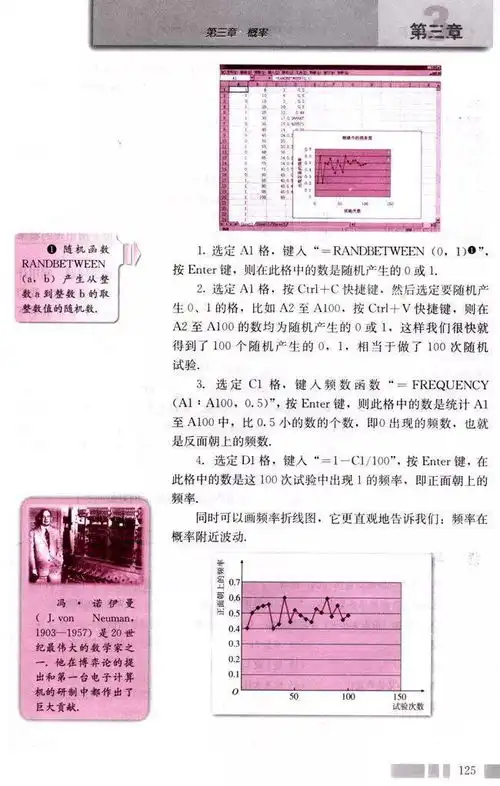 第三章 概率
第三章
1. 选定 A1 格，键入“＝RANDBETWEEN（0，1）❶”，
按 Enter 键，则在此格中的数是随机产生的 0 或 1.
2. 选定 A1 格，按 Ctrl＋C 快捷键，然后选定要随机产
生 0、1 的格，比如 A2 至 A100，按 Ctrl＋V 快捷键，则在
A2 至 A100 的数均为随机产生的 0 或 1，这样我们很快就
得到了 100 个随机产生的 0，1，相当于做了 100 次随机
试验.
3. 选定 C1 格，键入频数函数“＝FREQUENCY
（A1：A100，0.5）”，按 Enter 键，则此格中的数是统计 A1
至 A100 中，比 0.5 小的数的个数，即0 出现的频数，也就
是反面朝上的频数.
4. 选定 D1 格，键入“＝1－C1/100”，按 Enter 键，在
此格中的数是这 100 次试验中出现 1 的频率，即正面朝上的
频率.
同时可以画频率折线图，它更直观地告诉我们：频率在
概率附近波动.
❶ 随机函数
RANDBETWEEN
（a，b）产生从整
数 a 到整数 b 的取
整数值的随机数.
冯·诺伊曼
（J. von Neuman,
1903—1957）是 20 世
纪最伟大的数学家之
一. 他在博弈论的提
出和第一台电子计算
机的研制中都作出了
巨大贡献.
正面朝上的频率
0.7
0.6
0.5
0.4
0.3
0.2
0.1
O
50
100
150
试验次数
125